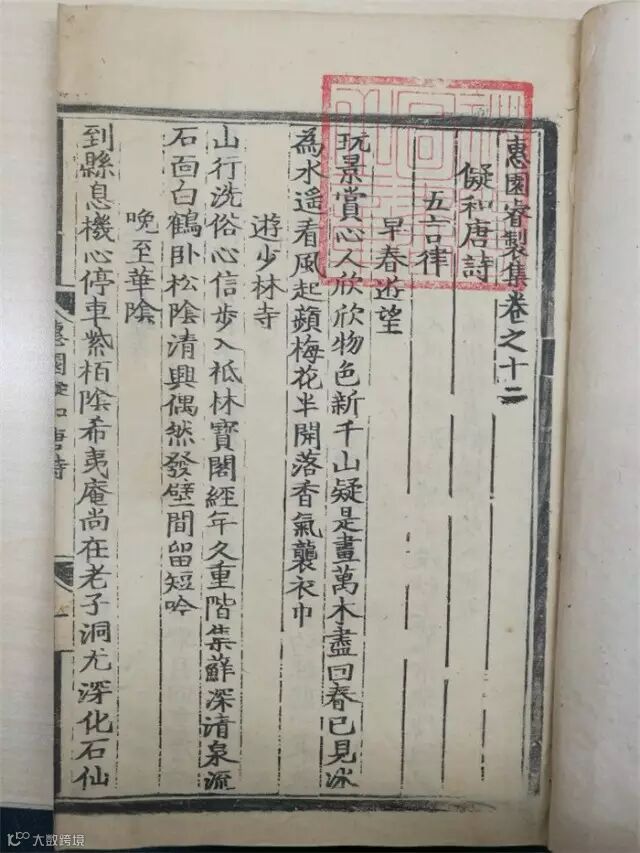 惠園睿製集卷之十二
儗和唐詩
五言律
早春遊望
玩景賞心人欣欣物色新千山疑是畫萬木盡回春已見冰
為水遙看風起蘋梅花半開落香氣襲衣巾
遊少林寺
山行洗俗心信步入祗林寶閣經年久重階集蘚深清泉流
石面白鶴卧松陰清興偶然發壁間留短吟
晚至華陰
到縣息機心停車紫栢陰希夷庵尚在老子洞尤深化石仙
惠園 和唐詩
一
大数跨境